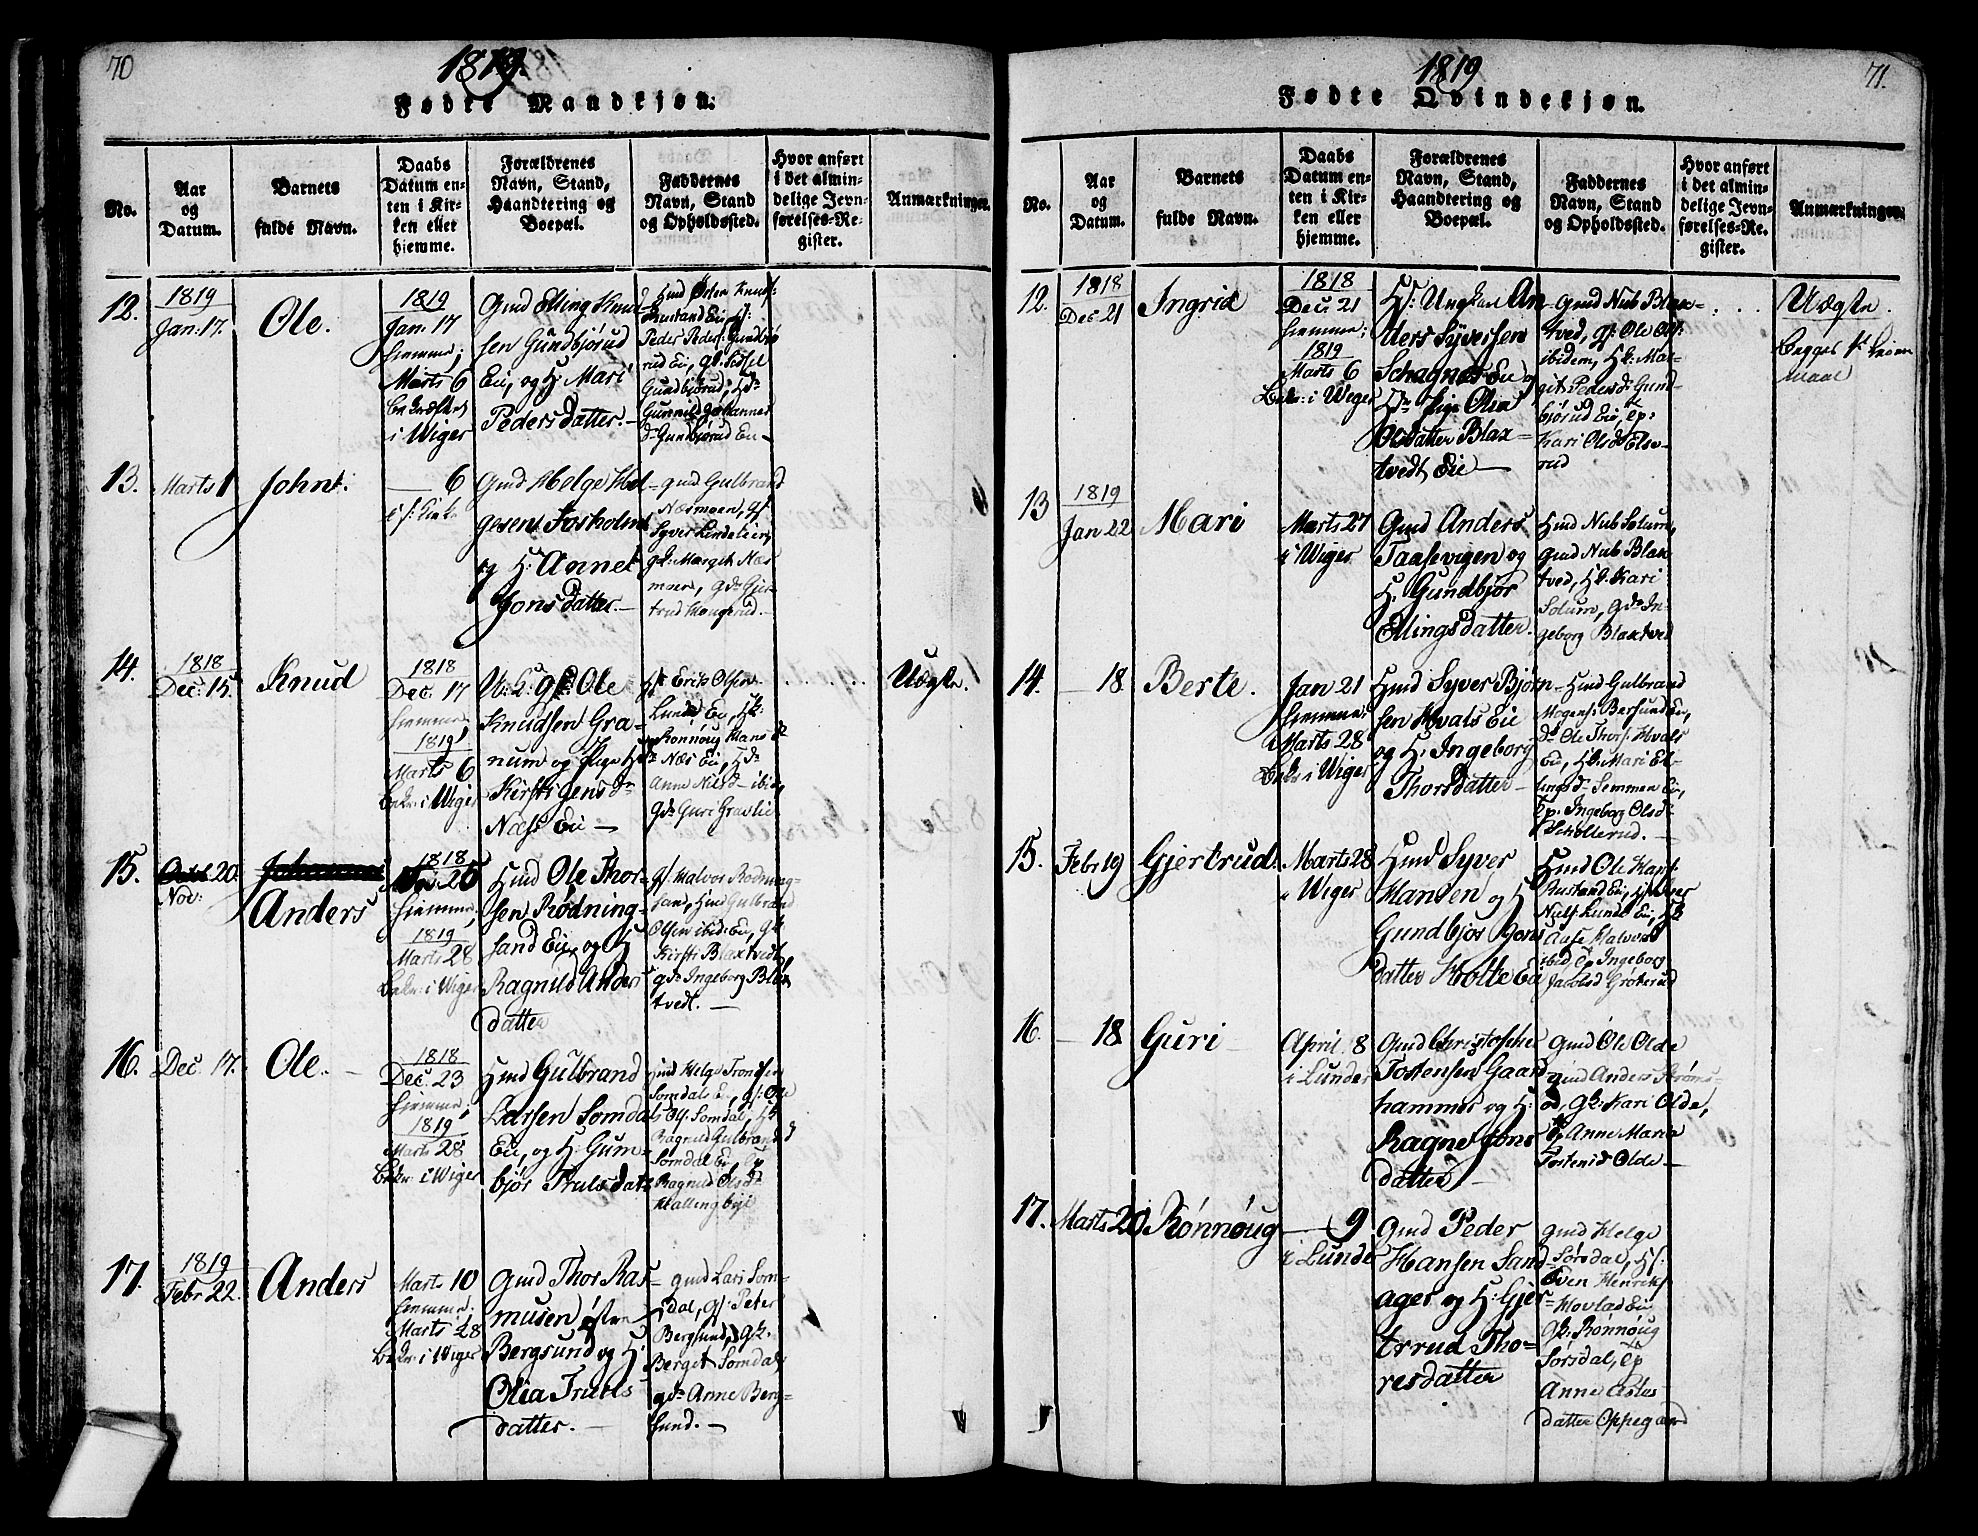 70
1819.
Fødte Mandkjøn.
No.
Aar
og
Datum.
Barnets
fulde Navn.
Daabs
Datum en-
ten i Kir-
ken eller
hjemme.
Forældrenes
Navn, Stand,
Haandtering og
Boepæl.
Faddernes
Navn, Stand
og Opholdssted.
Hvor anført
i det almin-
delige Jevn-
førelses-Re-
gister.
Anmærkninger.
12.
1819
Jan: 17.
Ole.
1819
Jan: 17
hiemme;
Marts 6
bekræftet
i Wiger
Gmd Elling Knud
sen Gundbjørud
Eie, og H: Mari
Pedersdatter. –
Hmd Østen Knuds:
Rustand Eie, H:
Peder Peders: Gundbjø
rud Ei, gk: Sidsel
Gundbjørud, Hd:
Gunnild Johannes
d: Gundbjørud Eie –
13.
Marts 1
John.
— 6
i s: Kirke
Gmd Helge Hel-
gesen Foskolmen
og H: Anne
Jonsdatter. –
gmd Gulbrand
Næsmoen, gs:
Syver Lindelien,
gk: Margit Næs
moen, gd: Gjer
trud Haugerud. –
14.
1818
Dec: 15.
Knud
1818
Dec: 17
hiemme,
1819
Marts 6
bekr: i Wiger
U: K: gs: Ole
Knudsen Gra-
num og Pige H
Kirsti Jensd:
Næss Eie –
Hs: Erik Olsen
Lunde Ei, Hk:
Rønnoug Hans d
Næs Ei, Hd:
Anne Nilsd – ibid,
gd: Guri Gravlie
Uægte.
15.
Octob. 20.
Nov:
Johannes
Anders
1818
25
hiemme,
1819
Marts 28
bekr: i Wiger
Hmd Ole Thor-
sen Rødning-
sand Eie, og H
Ragnild Anders
datter
gs: Halvor Rødning-
sand, Hmd Gulbrand
Olsen ibid: Eie, gk:
Kirsti Blaxtvedt,
gd: Ingeborg Blax
tvedt. –
16.
Dec: 17.
Ole. –
1818
Dec: 23
hiemme;
1819
Marts 28
bekr: i Wiger
Hmd Gulbrand
Larsen Somdal
Eie, og H: Gum-
bjør Trulsdat:
Hmd Helge Trondsen
Somdals Ei, gs: Ole
Somdal, Hk
Ragnild Gulbrandsd
Somdal Ei, Ep
Ragnild Olsd:
Hallingbye
17.
1819
Febr 22.
Anders
Marts 10
hiemme.
Marts 28
bekr: i Wiger
Gmd Thor Ras-
musen østre
Bergsund og H:
Olia Truls
datter. –
gmd Lars Som-
dal, gs: Peter
Bergsund, gk:
Berget Somdal,
gd: Anne Berg-
sund. –
71.
1819
Fødte Qvindekjøn.
No.
Aar
og
Datum.
Barnets
fulde Navn.
Daabs
Datum en-
ten i Kir-
ken eller
hjemme.
Forældrenes
Navn, Stand,
Haandtering og
Boepæl.
Faddernes
Navn, Stand
og Opholdssted.
Hvor anført
i det almin-
delige Jevn-
førelses-Re-
gister.
Anmærkninger.
12.
1818
Dec 21
Ingrid
1818
Dec: 21
hiemme;
1819
Marts 6
Bekr: i Wiger
H: Ungkarl An
ders Syversen
Eie og
H: Pige Olia
Olsdatter Blax-
tvedt Eie –
Gmd Nub Blax-
tved, gs: Ole Ols:
ibidem, Hk: Mar-
git Pedersd: Gund-
bjørud Ei, Ep:
Kari Olsd: Else-
rud
Uægte.
begges 1te Leier
maal
13
1819
Jan 22
Mari
Marts 27
i Wiger
Gmd Anders
Taasevigen og
H: Gundbjør
Ellingsdatter.
Hmd Nub Solum,
gmd Nub Blax
tved, Hk: Kari
Solum, gd: In-
geborg Blaxtved
14.
– 18
Berte.
Jan 21
hiemme;
Marts 28
bekr: i Wiger
Hmd Syver Bjørn-
sen Hvals Eie
og H: Ingeborg
Thorsdatter –
Hmd Gulbrand
Mogens: Bersund Ei,
d: Ole Thors: Hvals
Ei, Hk: Mari El-
lingsd – Semmen Ei,
Ep. Ingeborg Olsd
Skollerud. –
15.
Febr 19
Gjertrud.
Marts 28
i Wiger
Hmd Syver
Hansen og H
Gundbjør Jons
datter Kolte Eie
Hmd Ole Hans:
Rustand Ei,
Niels Lunde Ei, Hk
Aase Halvorsd
ibid Ep Ingeborg
Jacobsd Grøterud
16.
– 18
Guri –
April 8
i Lunder
Gmd Christopher
Tostensen Gaard
hammer og H:
Ragne Jons
datter. –
gmd Ole Olde
gmd Anders Strøms-
od, gk: Kari Olde,
Ep Anne Maria
Tostensd Olde –
17.
Marts 20
Rønnoug
– 9
i Lunder
Gmd Peder
Hansen Sand-
ager og H: Gjer
trud Tho-
resdatter
gmd Helge
Sørsdal, Hs:
Even Henriks
Hovland Ei
Gk: Rønnoug
Sørsdal, Ep
Anne Asles
datter Oppegaard